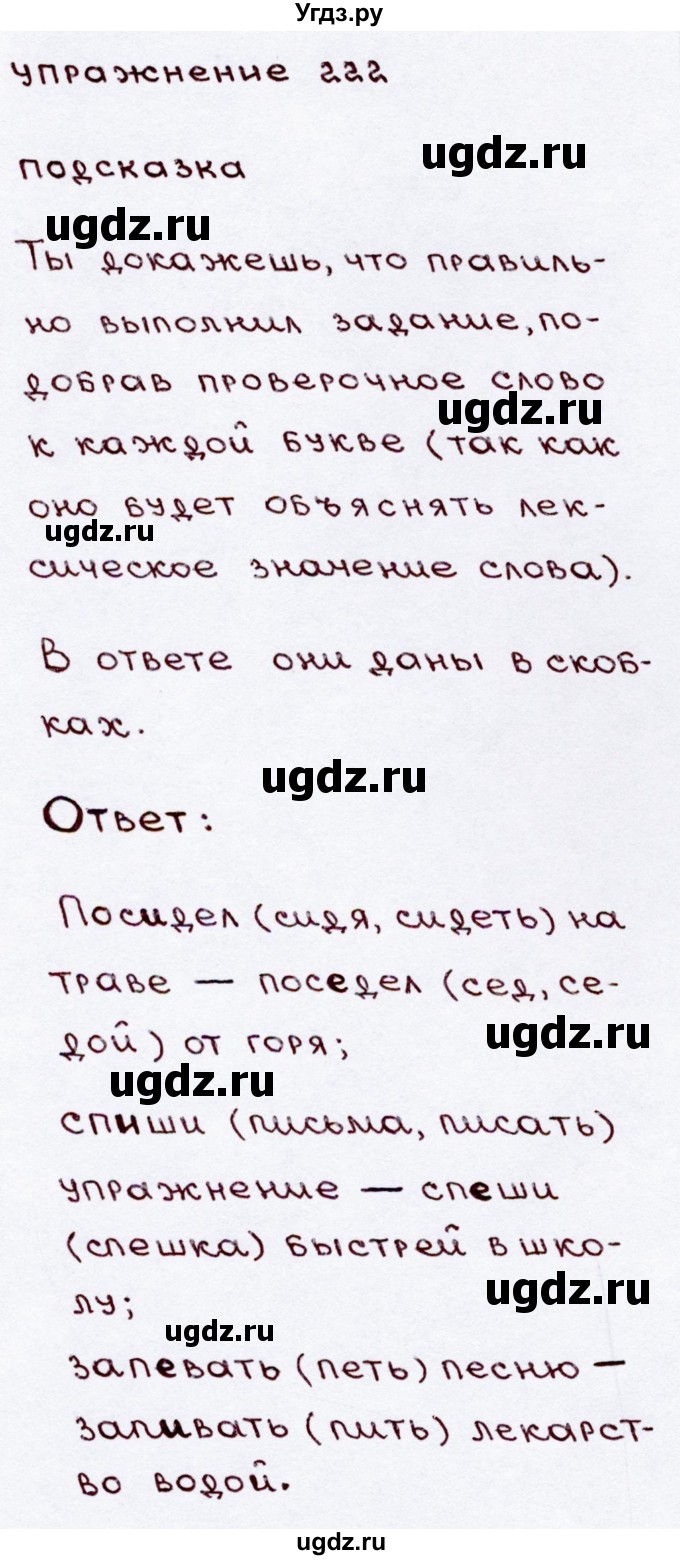 Угдз.ру
упражнение 222
ugdz.ru
подсказка
ugdz.ru
Ты докажешь, что правиль-
но выполнил задание, по-
добрав проверочное слово
ugdz.ru
к каждой букве (так как
оно будет объяснять лек-
ugdz.ru
сическое значение слова).
В ответе они даны в скоб-
ках.
ugdz.ru
Ответ:
Посидел (сидя, сидеть) на
траве — поседел (сед, се-
ugdz.ru
дой) от горя;
ugdz.ru
спиши (письма, писать)
упражнение — спеши
(спешка) быстрей в шко-
ugdz.ru
лу;
ugdz.ru
запевать (петь) песню —
запивать (пить) лекарст-
во водой.
ugdz.ru